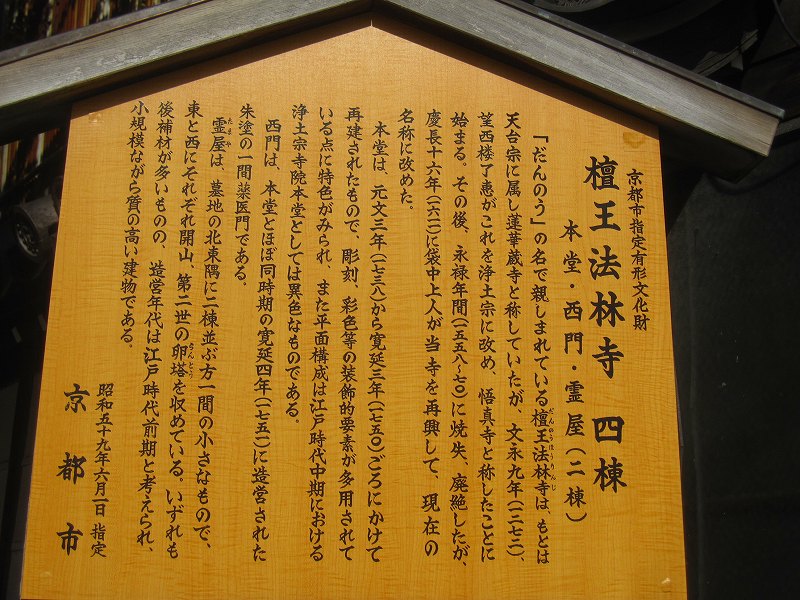 京都市指定有形文化財
檀王法林寺 四棟
本堂・西門・霊屋(二棟)
「だんのう」の名で親しまれている檀王法林寺は、もとは
天台宗に属し蓮華蔵寺と称していたが、文永九年(一二七二)、
望西楼了恵がこれを浄土宗に改め、悟真寺と称したことに
始まる。その後、永禄年間(一五五八〜七〇)に焼失、廃絶したが、
慶長十六年(一六一一)に袋中上人が当寺を再興して、現在の
名称に改めた。
本堂は、元文三年(一七三八)から寛延三年(一七五〇)ごろにかけて
再建されたもので、彫刻、彩色等の装飾的要素が多用されて
いる点に特色がみられ、また平面構成は江戸時代中期における
浄土宗寺院本堂としては異色なものである。
西門は、本堂とほぼ同時期の寛延四年(一七五一)に造営された
朱塗の一間薬医門である。
霊屋は、墓地の北東隅に二棟並ぶ方一間の小さなもので、
東と西にそれぞれ開山、第二世の卵塔を収めている。いずれも
後補材が多いものの、造営年代は江戸時代前期と考えられ、
小規模ながら質の高い建物である。
昭和五十九年六月一日 指定
京都市